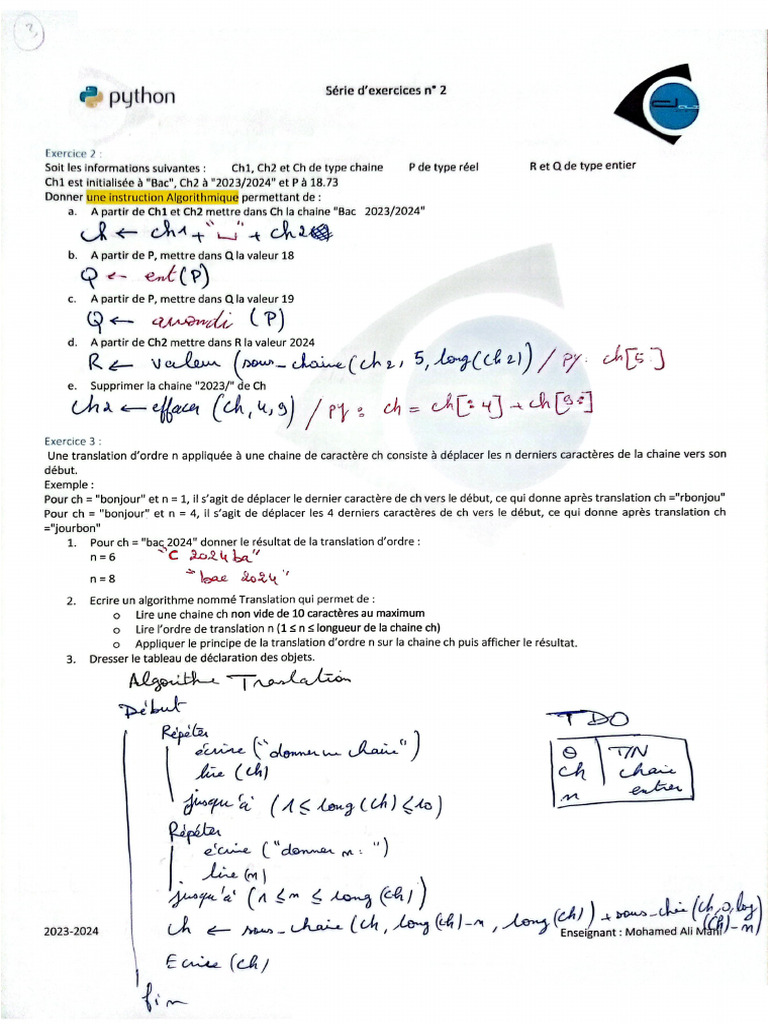 2
python
Série d'exercices n° 2
Exercice 2 :
Soit les informations suivantes : Ch1, Ch2 et Ch de type chaine P de type réel R et Q de type entier
Ch1 est initialisée à "Bac", Ch2 à "2023/2024" et P à 18.73
Donner une instruction Algorithmique permettant de :
a. A partir de Ch1 et Ch2 mettre dans Ch la chaine "Bac 2023/2024"
ch ← ch1 + "␣" + ch2
b. A partir de P, mettre dans Q la valeur 18
Q ← ent(P)
c. A partir de P, mettre dans Q la valeur 19
Q ← arrondi (P)
d. A partir de Ch2 mettre dans R la valeur 2024
R ← valeur (sous-chaine(ch2, 5, long(ch2)) / py: ch[5:]
e. Supprimer la chaine "2023/" de Ch
ch2 ← effacer (ch,4,9) / py: ch = ch[:4] + ch[9:]
Exercice 3 :
Une translation d'ordre n appliquée à une chaine de caractère ch consiste à déplacer les n derniers caractères de la chaine vers son
début.
Exemple :
Pour ch = "bonjour" et n = 1, il s'agit de déplacer le dernier caractère de ch vers le début, ce qui donne après translation ch ="rbonjou"
Pour ch = "bonjour" et n = 4, il s'agit de déplacer les 4 derniers caractères de ch vers le début, ce qui donne après translation ch
="jourbon"
1. Pour ch = "bac 2024" donner le résultat de la translation d'ordre :
n = 6 "C 2024ba"
n = 8 "bac 2024"
2. Ecrire un algorithme nommé Translation qui permet de :
o Lire une chaine ch non vide de 10 caractères au maximum
o Lire l'ordre de translation n (1 ≤ n ≤ longueur de la chaine ch)
o Appliquer le principe de la translation d'ordre n sur la chaine ch puis afficher le résultat.
3. Dresser le tableau de déclaration des objets.
Algorithe Traslation
Début
Répéter
écrire ("donner un chaine")
lire (ch)
jusqu'à (1 ≤ long(ch) ≤ 10)
Répéter
écrire ("donner n: ")
lire (n)
jusqu'à (1 ≤ n ≤ long(ch))
ch ← sous-chaine (ch, long(ch)-n, long(ch)) + sous-chaie (ch,0,log
(ch)-n)
Ecrire (ch)
fin
TDO
O T/N
ch chaine
n entier
2023-2024
Enseignant : Mohamed Ali Mani